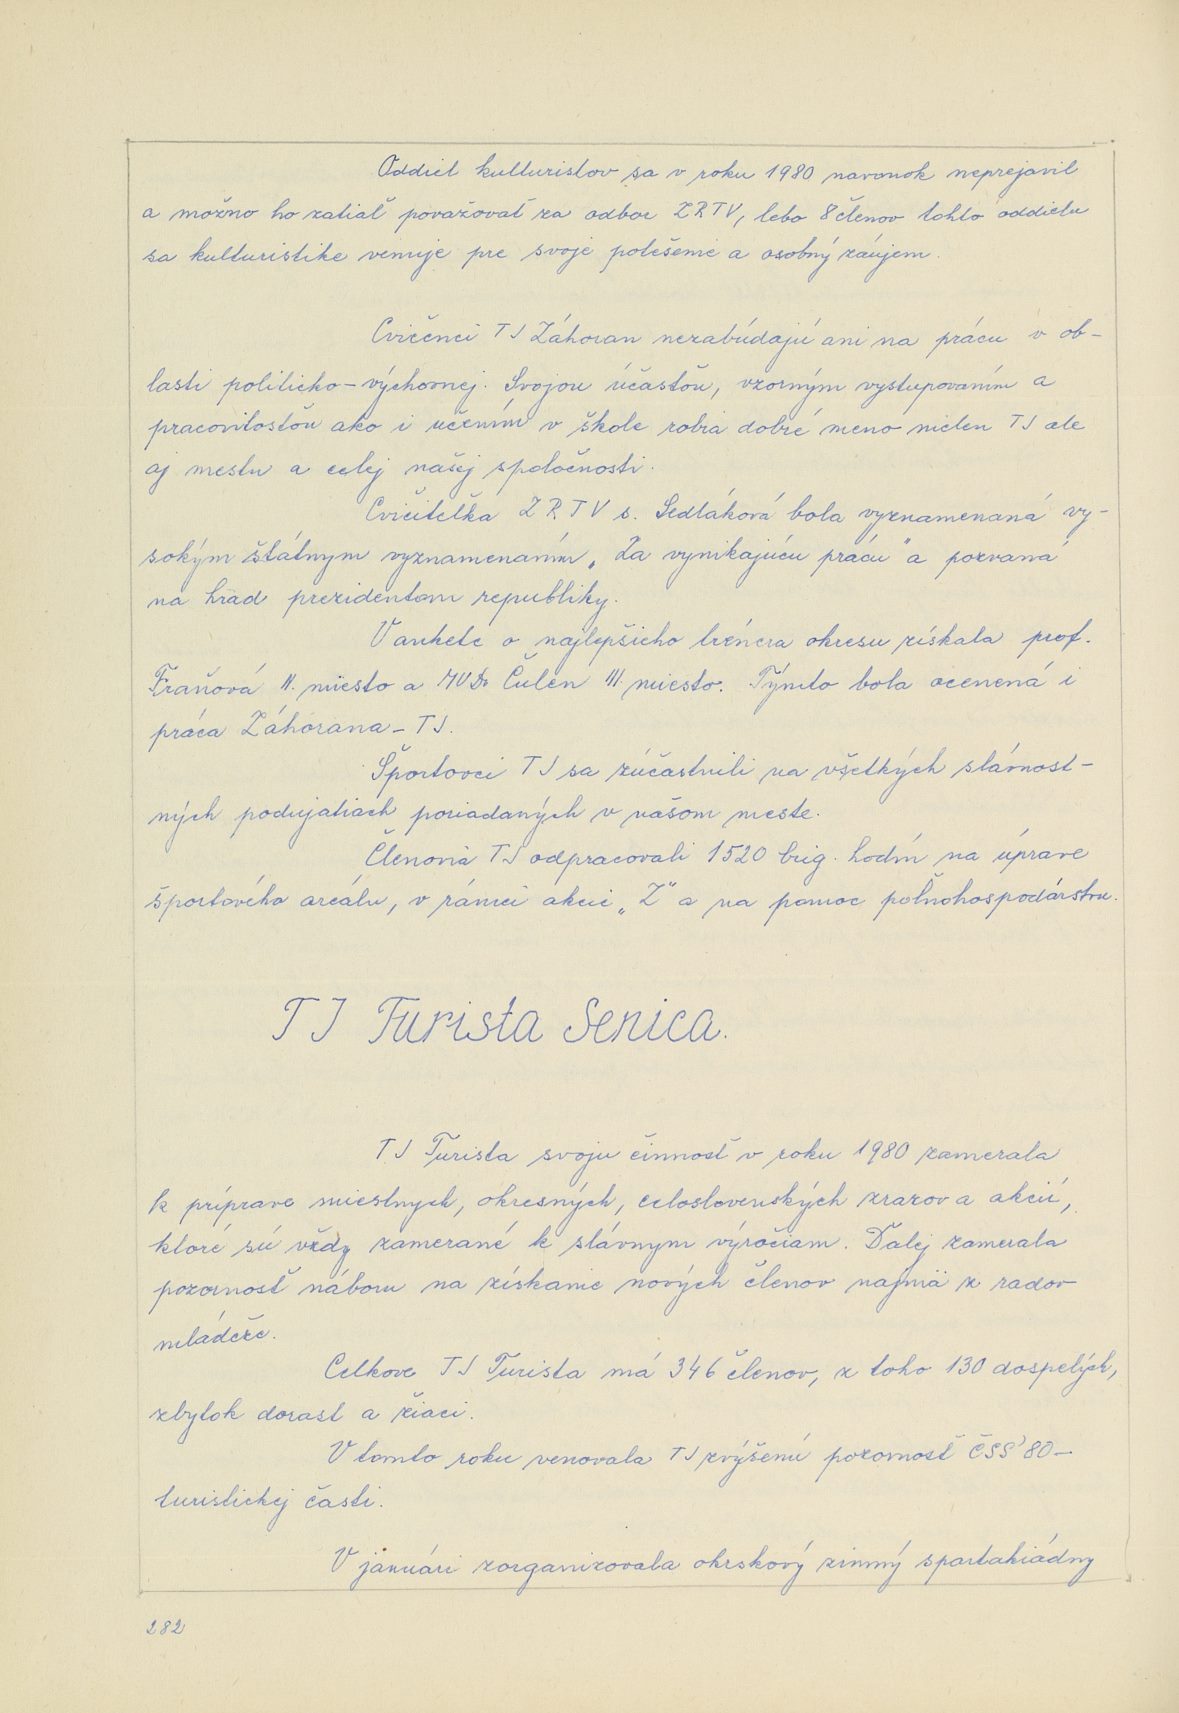 Oddiel kulturistov sa v roku 1980 navonok neprejavil
a možno ho zatiaľ považovať za odbor ZRTV, lebo 8 členov tohto oddielu
sa kulturistike venuje pre svoje potešenie a osobný záujem.
Cvičenci TJ Záhoran nezabúdajú ani na prácu v ob-
lasti politicko-výchovnej. Svojou účasťou, vzorným vystupovaním a
pracovitosťou ako i učením v škole robia dobré meno nielen TJ ale
aj mestu a celej našej spoločnosti.
Cvičiteľka ZRTV s. Sedláková bola vyznamenaná vy-
sokým štátnym vyznamenaním „Za vynikajúcu prácu" a pozvaná
na hrad prezidentom republiky.
V ankete o najlepšieho trénera okresu získala prof.
Fraňová II. miesto a MVDr Čulen III. miesto. Týmto bola ocenená i
práca Záhorana - TJ.
Športovci TJ sa zúčastnili na všetkých slávnost-
ných podujatiach poriadaných v našom meste.
Členovia TJ odpracovali 1520 brig. hodín na úprave
športového areálu, v rámci akcií „Z" a na pomoc poľnohospodárstvu.
TJ Turista Senica.
TJ Turista svoju činnosť v roku 1980 zamerala
k príprave miestnych, okresných, celoslovenských zrazov a akcií,
ktoré sú vždy zamerané k slávnym výročiam. Ďalej zamerala
pozornosť náboru na získanie nových členov najmä z radov
mládeže.
Celkove TJ Turista má 346 členov, z toho 130 dospelých,
zbytok dorast a žiaci.
V tomto roku venovala TJ zvýšenú pozornosť ČSS'80-
turistickej časti.
V januári zorganizovala okrskový zimný spartakiádny
282